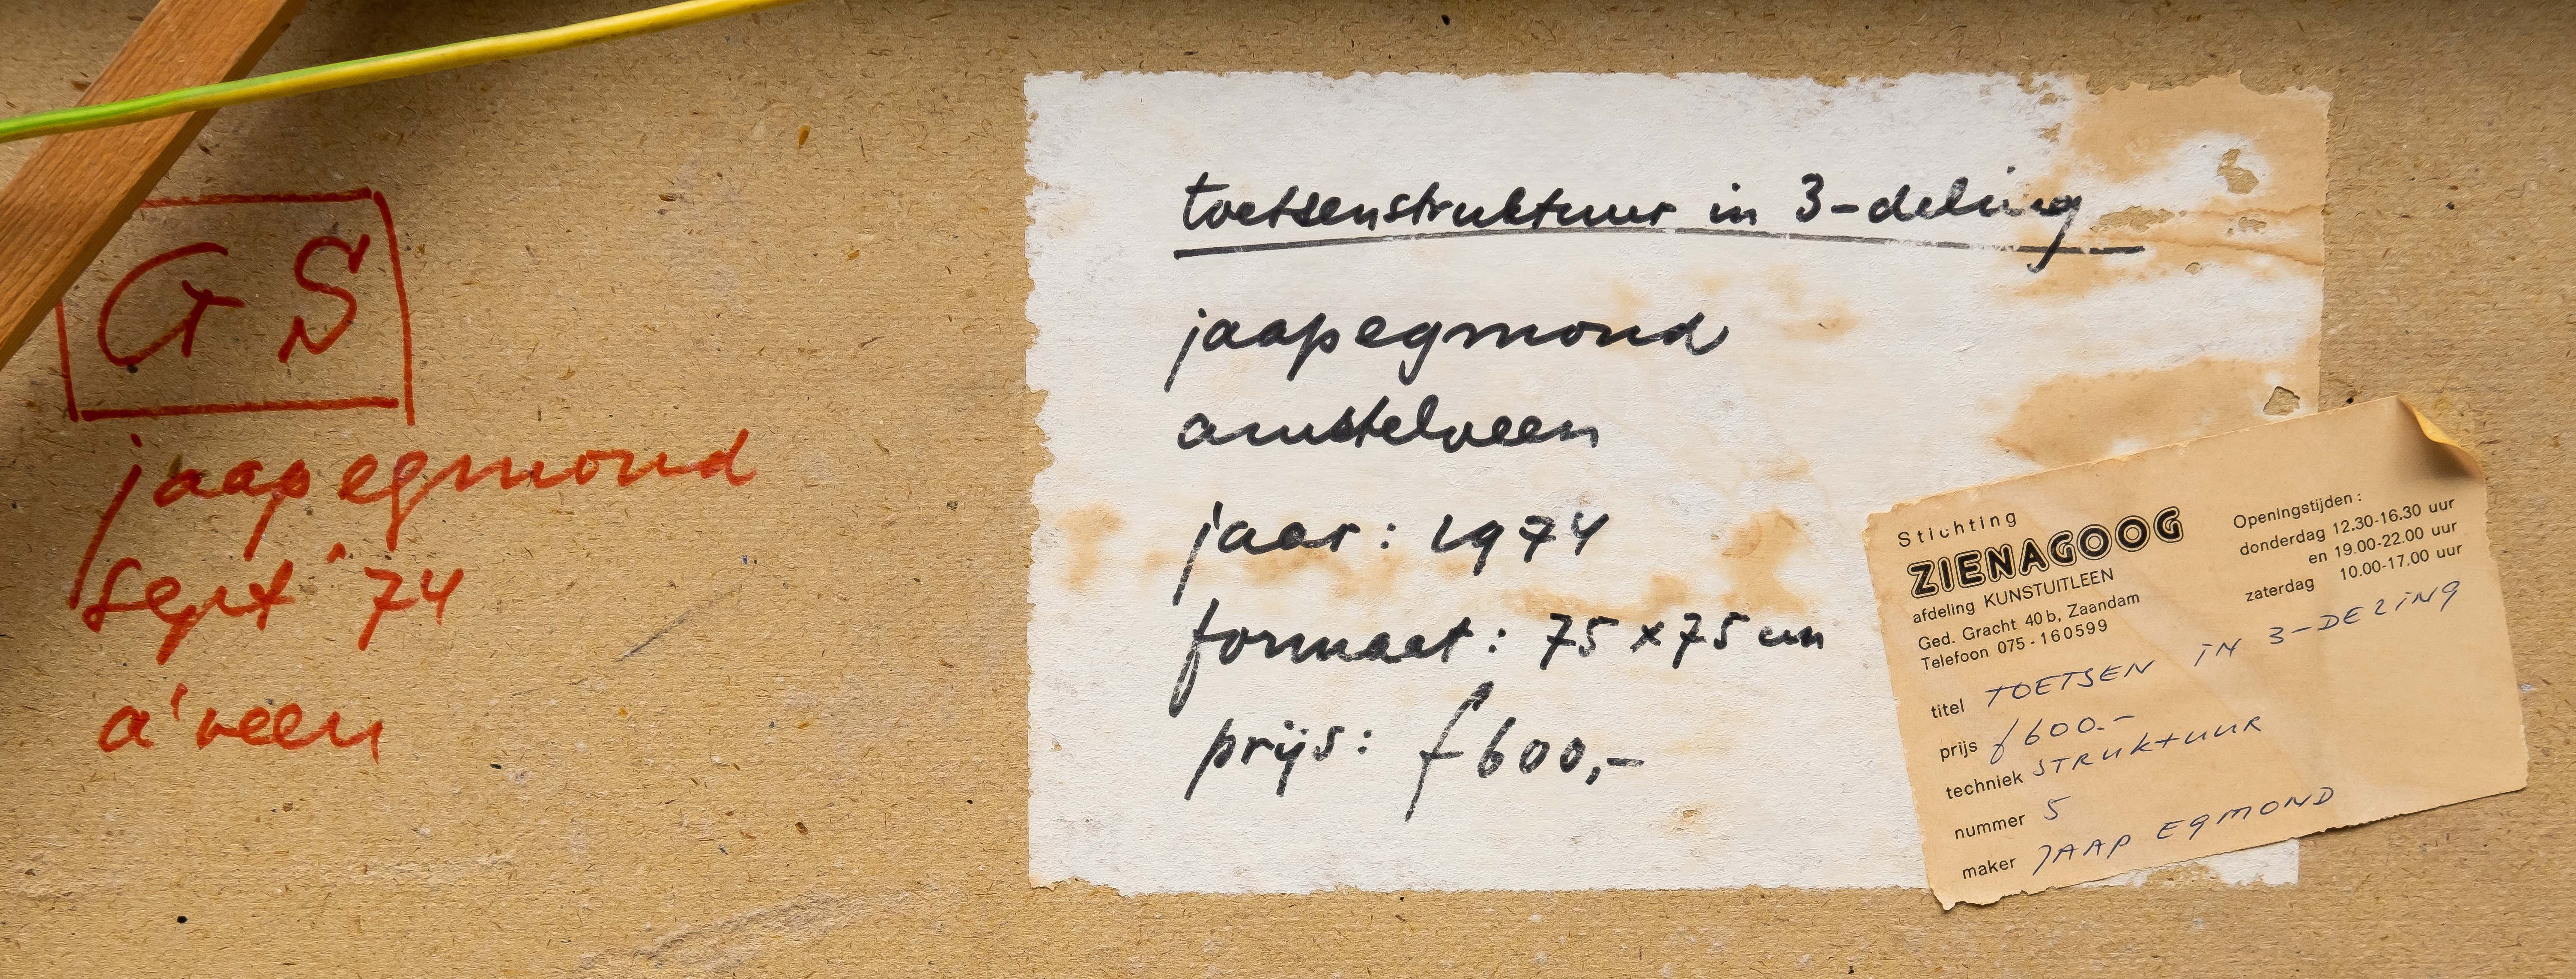 GS
jaap egmond
sept '74
a'veen
toetsenstruktuur in 3-deling
jaap egmond
amstelveen
jaar: 1974
formaat: 75 x 75 cm
prijs: f 600,-
Stichting
ZIENAGOOG
afdeling KUNSTUITLEEN
Ged. Gracht 40 b, Zaandam
Telefoon 075-160599
Openingstijden:
donderdag 12.30-16.30 uur
en 19.00-22.00 uur
zaterdag 10.00-17.00 uur
titel TOETSEN IN 3-DELING
prijs f 600.-
techniek STRUKTUUR
nummer 5
maker JAAP EGMOND